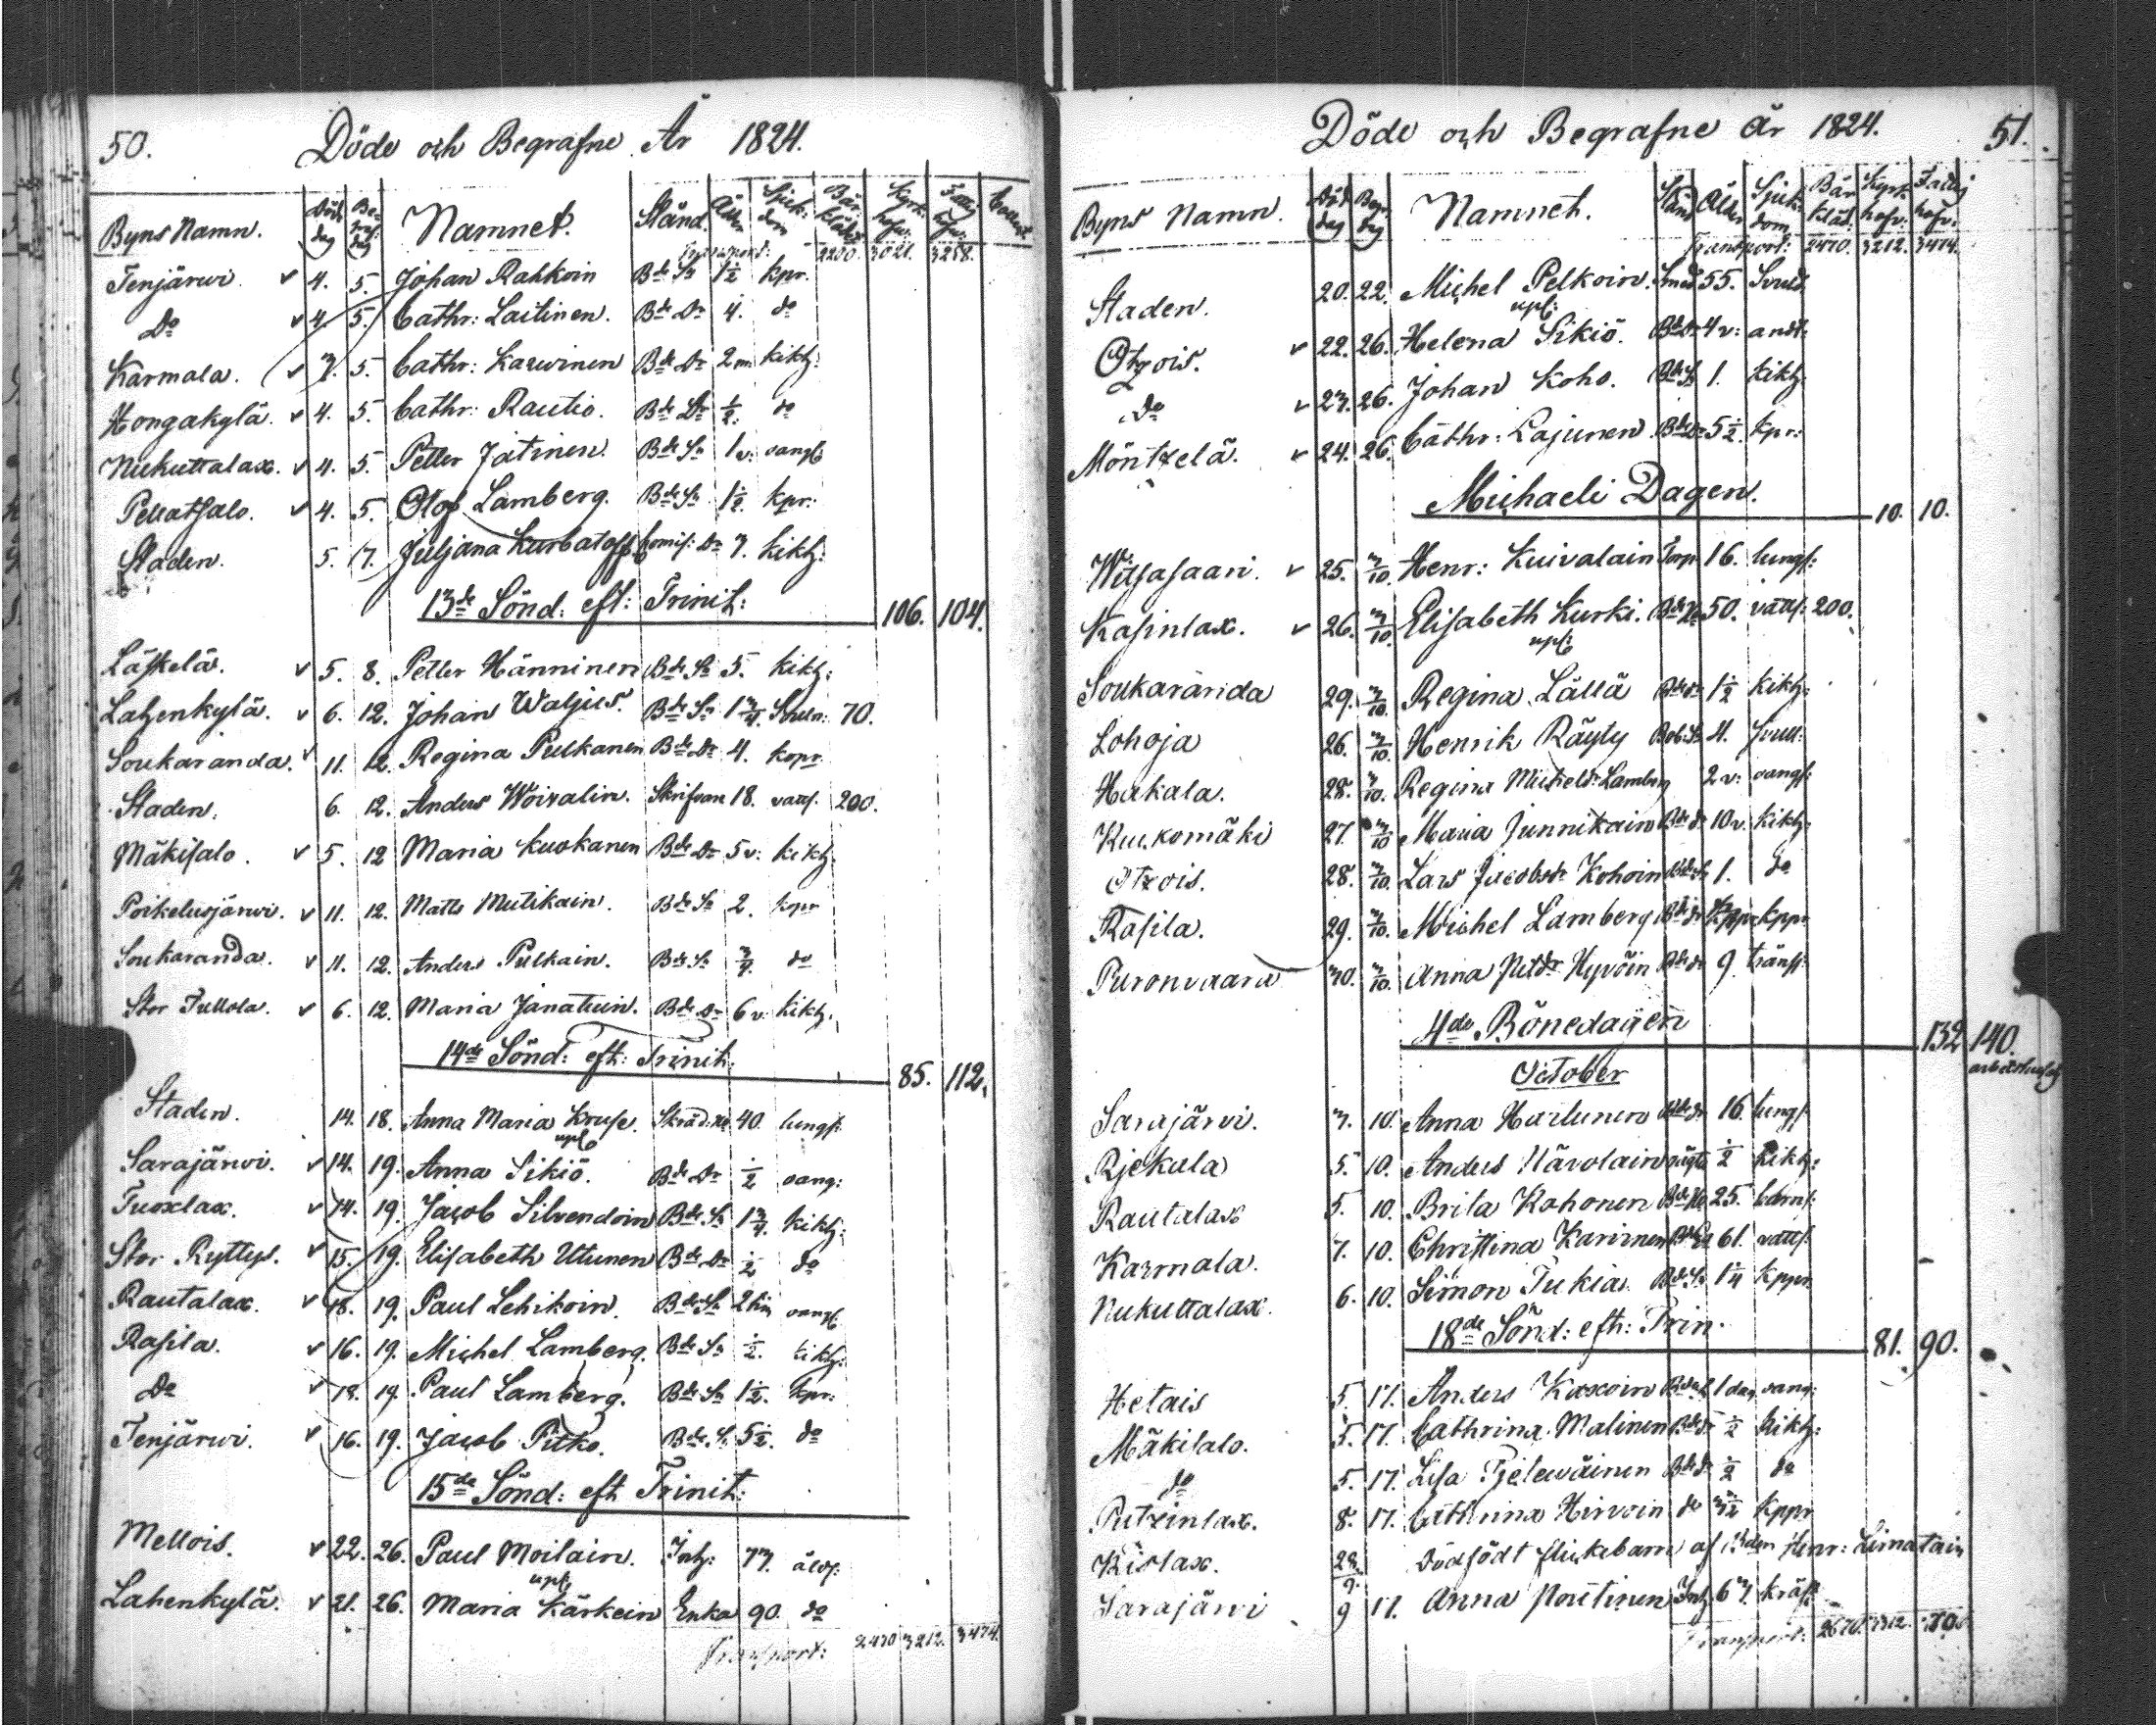 50. Döde och Begrafne År 1824.
Byns Namn. Död dag Begraf: dag Namnet. Stånd. Ålder Sjukdom Bår kläde Kyrk hofv: Fattig hofv: Collect
Transport: 2200. 3021. 3258.
Tenjärwi. v 4. 5. Johan Rahkoin Bde Sn 1½ kpr.
Do v 4. 5. Cathr: Laitinen. Bde Dr 4. do
Karmala. v 3. 5. Cathr: Karwinen Bde Dr 2 m kikh:
Hongakylä. v 4. 5. Cathr: Rautio. Bde Dr ½. do
Nukuttalax. v 4. 5. Petter Jätinen. Bde Sn 1 v: oangf:
Pellotsalo. v 4. 5. Olof Lamberg. Bde Sn 1½ kpr:
Staden. 5. 7. Juljana Kurbatoff Comis: Dr 3. kikh:
13de Sönd: eft: Trinit: 106. 104.
Läskelä. v 5. 8. Petter Hänninen Bde Sn 5. kikh:
Lahenkylä. v 6. 12. Johan Waljus. Bde Sn 1¾. 70.
Soukaranda. v 11. 12. Regina Pulkanen Bde Dr 4. kopr
Staden. 6. 12. Anders Woivalin. Skrifvare 18. vatts. 200.
Mäkisalo. v 5. 12 Maria Kuokanen Bde Dr 5 v: kikh:
Poikelusjärwi. v 11. 12. Matts Mutikain. Bde Sn 2. kopr
Soukaranda. v 11. 12. Anders Pulkain. Bde Sn ¾ do
Stor Tullola. v 6. 12. Maria Janatuin. Bde Dr 6 v. kikh.
14de Sönd: eft: Trinit: 85. 112.
Staden. 14. 18. Anna Maria Kruse. 40. lungs:
upl:
Sarajärwi. v 14. 19. Anna Sikiö. Bde Dr ½ oang:
Tuoxlax. v 14. 19. Jacob Silvendoin Bde Sn 1¾. kikh:
Stor Ryttys. v 15. 19. Elisabeth Utunen Bde Dr ½ do
Rautalax. v 18. 19. Paul Lehikoin. Bde Sn 2 tim oangf
Rasila. v 16. 19. Michel Lamberg. Bde Sn ½. kikh:
Do v 18. 19. Paul Lamberg. Bde Sn 1½. kpr:
Tenjärwi. v 16. 19. Jacob Pitko. Bde Sn 5½. do
15de Sönd: eft Trinit:
Mellois. v 22. 26. Paul Moilain. Inh: 73. åld:
upl:
Lahenkylä. v 21. 26. Maria Kärkein Enka 90. do
Transport: 2470 3212. 3474.
Döde och Begrafne år 1824. 51.
Byns Namn. Död dag Begr dag Namnet. Stånd Ålder Sjukdom Bår kläd: Kyrk hofv: Fattig hofv:
Transport: 2470. 3212. 3474.
Staden. 20. 22. Michel Pelkoin. Smed 55. Svuls.
upl:
Otzois. v 22. 26. Helena Sikiö. Bde Dr 4 v: andt.
do v 23. 26. Johan Koho. Bde Sn 1. kikh:
Möntzelä. v 24. 26. Cathr: Lajunen Bde Dr 5½. kpr:
Michaeli Dagen. 10. 10.
Witsasaari. v 25. 3/10. Henr: Kuivalain Torp 16. lungs:
Kasinlax. v 26. 3/10. Elisabeth Kurki. 50. vatts: 200.
upl:
Soukaranda 29. 3/10. Regina Lällä Bde Dr 1½ kikh:
Lohoja 26. 3/10. Henrik Räyty 4.
Hakala. 28. 3/10. Regina Lamberg 2 v: oangf:
Kuckomäki 27. 3/10 Maria Junnikain Bde Dr 10 v. kikh:
Otzois. 28. 3/10. Lars Jacobsd: Kohoin 1. do
Rasila. 29. 3/10. Michel Lamberg kppr
Puronvaara 30. 3/10. Anna Petdr Hyvöin Bde Dr 9. tränsj:
4de Bönedagen 132 140.
October
Sarajärvi. 3. 10. Anna Hailunen Bde Dr 16. lungs:
Rjekala 5. 10. Anders Närvolain ½ kikh:
Rautalax 5. 10. Brita Kohonen 25. barns:
Karmala. 7. 10. Christina Karvinen 61. vatts:
Nukuttalax. 6. 10. Simon Tukia. Bde Sn 1¼ kppr.
18de Sönd: eft: Trin. 81. 90.
Hetais 5. 17. Anders Kaxoin 1 dag oang:
Mäkisalo. 5. 17. Cathrina Malinen Bde Dr ½ kikh:
do 5. 17. Lisa Pjelewäinen Bde Dr ½ do
Putzinlax. 8. 17. Cathrina Hirvoin do 3½ kppr
Kislax. 28/9. Dödfödt flickebarn af Bden Henr: Limatain
Sarajärvi 9 17. Anna Poutinen Inh. 63. kräft
Transport: 2670.